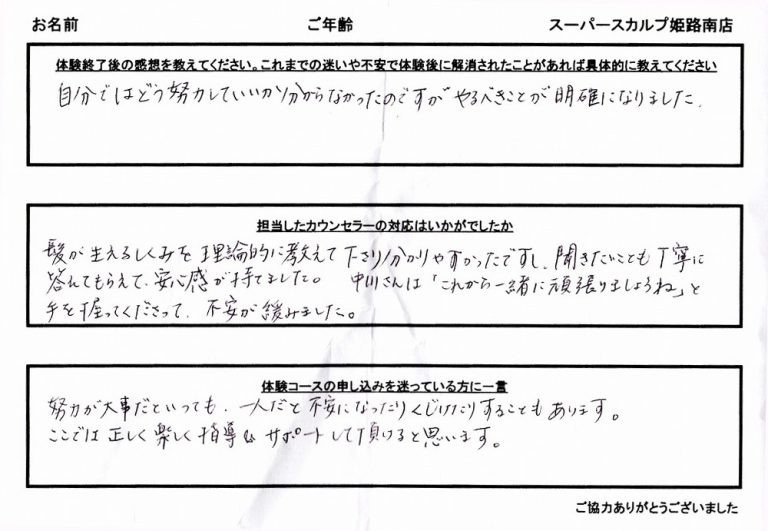 お名前 ご年齢 スーパースカルプ姫路南店
体験終了後の感想を教えてください。これまでの迷いや不安で体験後に解消されたことがあれば具体的に教えてください
自分ではどう努力していいか分からなかったのですが やるべきことが 明確になりました.
担当したカウンセラーの対応はいかがでしたか
髪が生えるしくみを理論的に教えて下さり分かりやすかったですし、聞きたいことも丁寧に
答えてもらえて、安心感が持てました。 中川さんは「これから一緒に頑張りましょうね」と
手を握ってくださって、不安が緩みました。
体験コースの申し込みを迷っている方に一言
努力が大事だといっても、一人だと不安になったりくじけたりすることもあります。
ここでは正しく楽しく指導& サポートして頂けると思います。
ご協力ありがとうございました